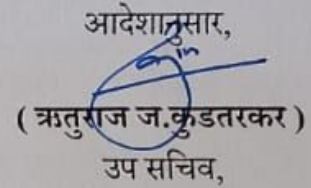 आदेशानुसार,
( ऋतुराज ज.कुडतरकर )
उप सचिव,